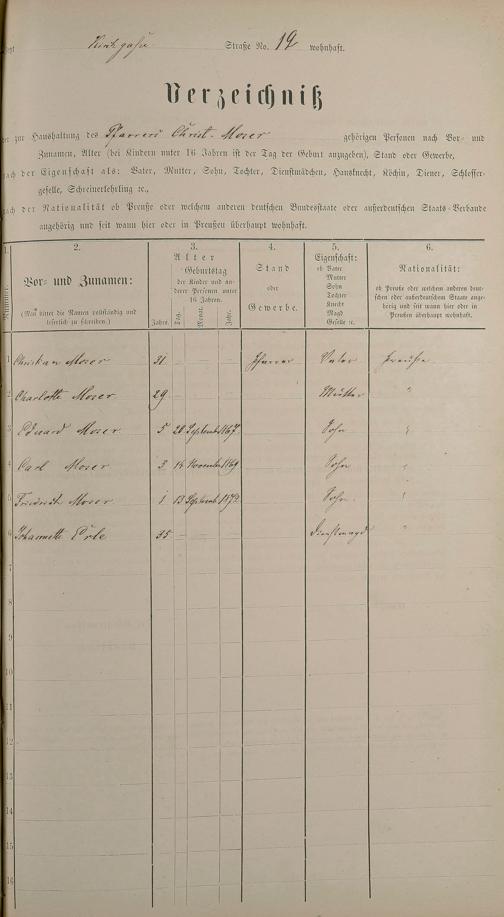 Kirchgasse Straße No. 19 wohnhaft.
Verzeichniß
der zur Haushaltung des Pfarrers Christ. Moser gehörigen Personen nach Vor- und
Zunamen, Alter (bei Kindern unter 16 Jahren ist der Tag der Geburt anzugeben), Stand oder Gewerbe,
nach der Eigenschaft als: Vater, Mutter, Sohn, Tochter, Dienstmädchen, Hausknecht, Köchin, Diener, Schlosser-
geselle, Schreinerlehrling ec.,
nach der Nationalität ob Preuße oder welchem anderen deutschen Bundesstaate oder außerdeutschen Staats-Verbande
angehörig und seit wann hier oder in Preußen überhaupt wohnhaft.
1. 2. 3. 4. 5. 6.
Nummer.
Vor- und Zunamen:
(Man bittet die Namen vollständig und
leserlich zu schreiben.)
Alter
Jahre.
Geburtstag
der Kinder und an-
derer Personen unter
16 Jahren.
Tag. Monat. Jahr.
Stand
oder
Gewerbe.
Eigenschaft:
ob Vater
Mutter
Sohn
Tochter
Knecht
Magd
Geselle ec.
Nationalität:
ob Preuße oder welchem anderen deut-
schen oder außerdeutschen Staate ange-
hörig und seit wann hier oder in
Preußen überhaupt wohnhaft.
1 Christian Moser 31 — — — Pfarrer Vater Preuße
2 Charlotte Moser 29 — — — Mutter "
3 Eduard Moser 5 20 September 1867 Sohn "
4 Carl Moser 3 14 November 1869 Sohn "
5 Friedrich Moser 1 13 September 1872 Sohn "
6 Johannette 35 — — — Dienstmagd "
7
8
9
10
11
12
13
14
15
16